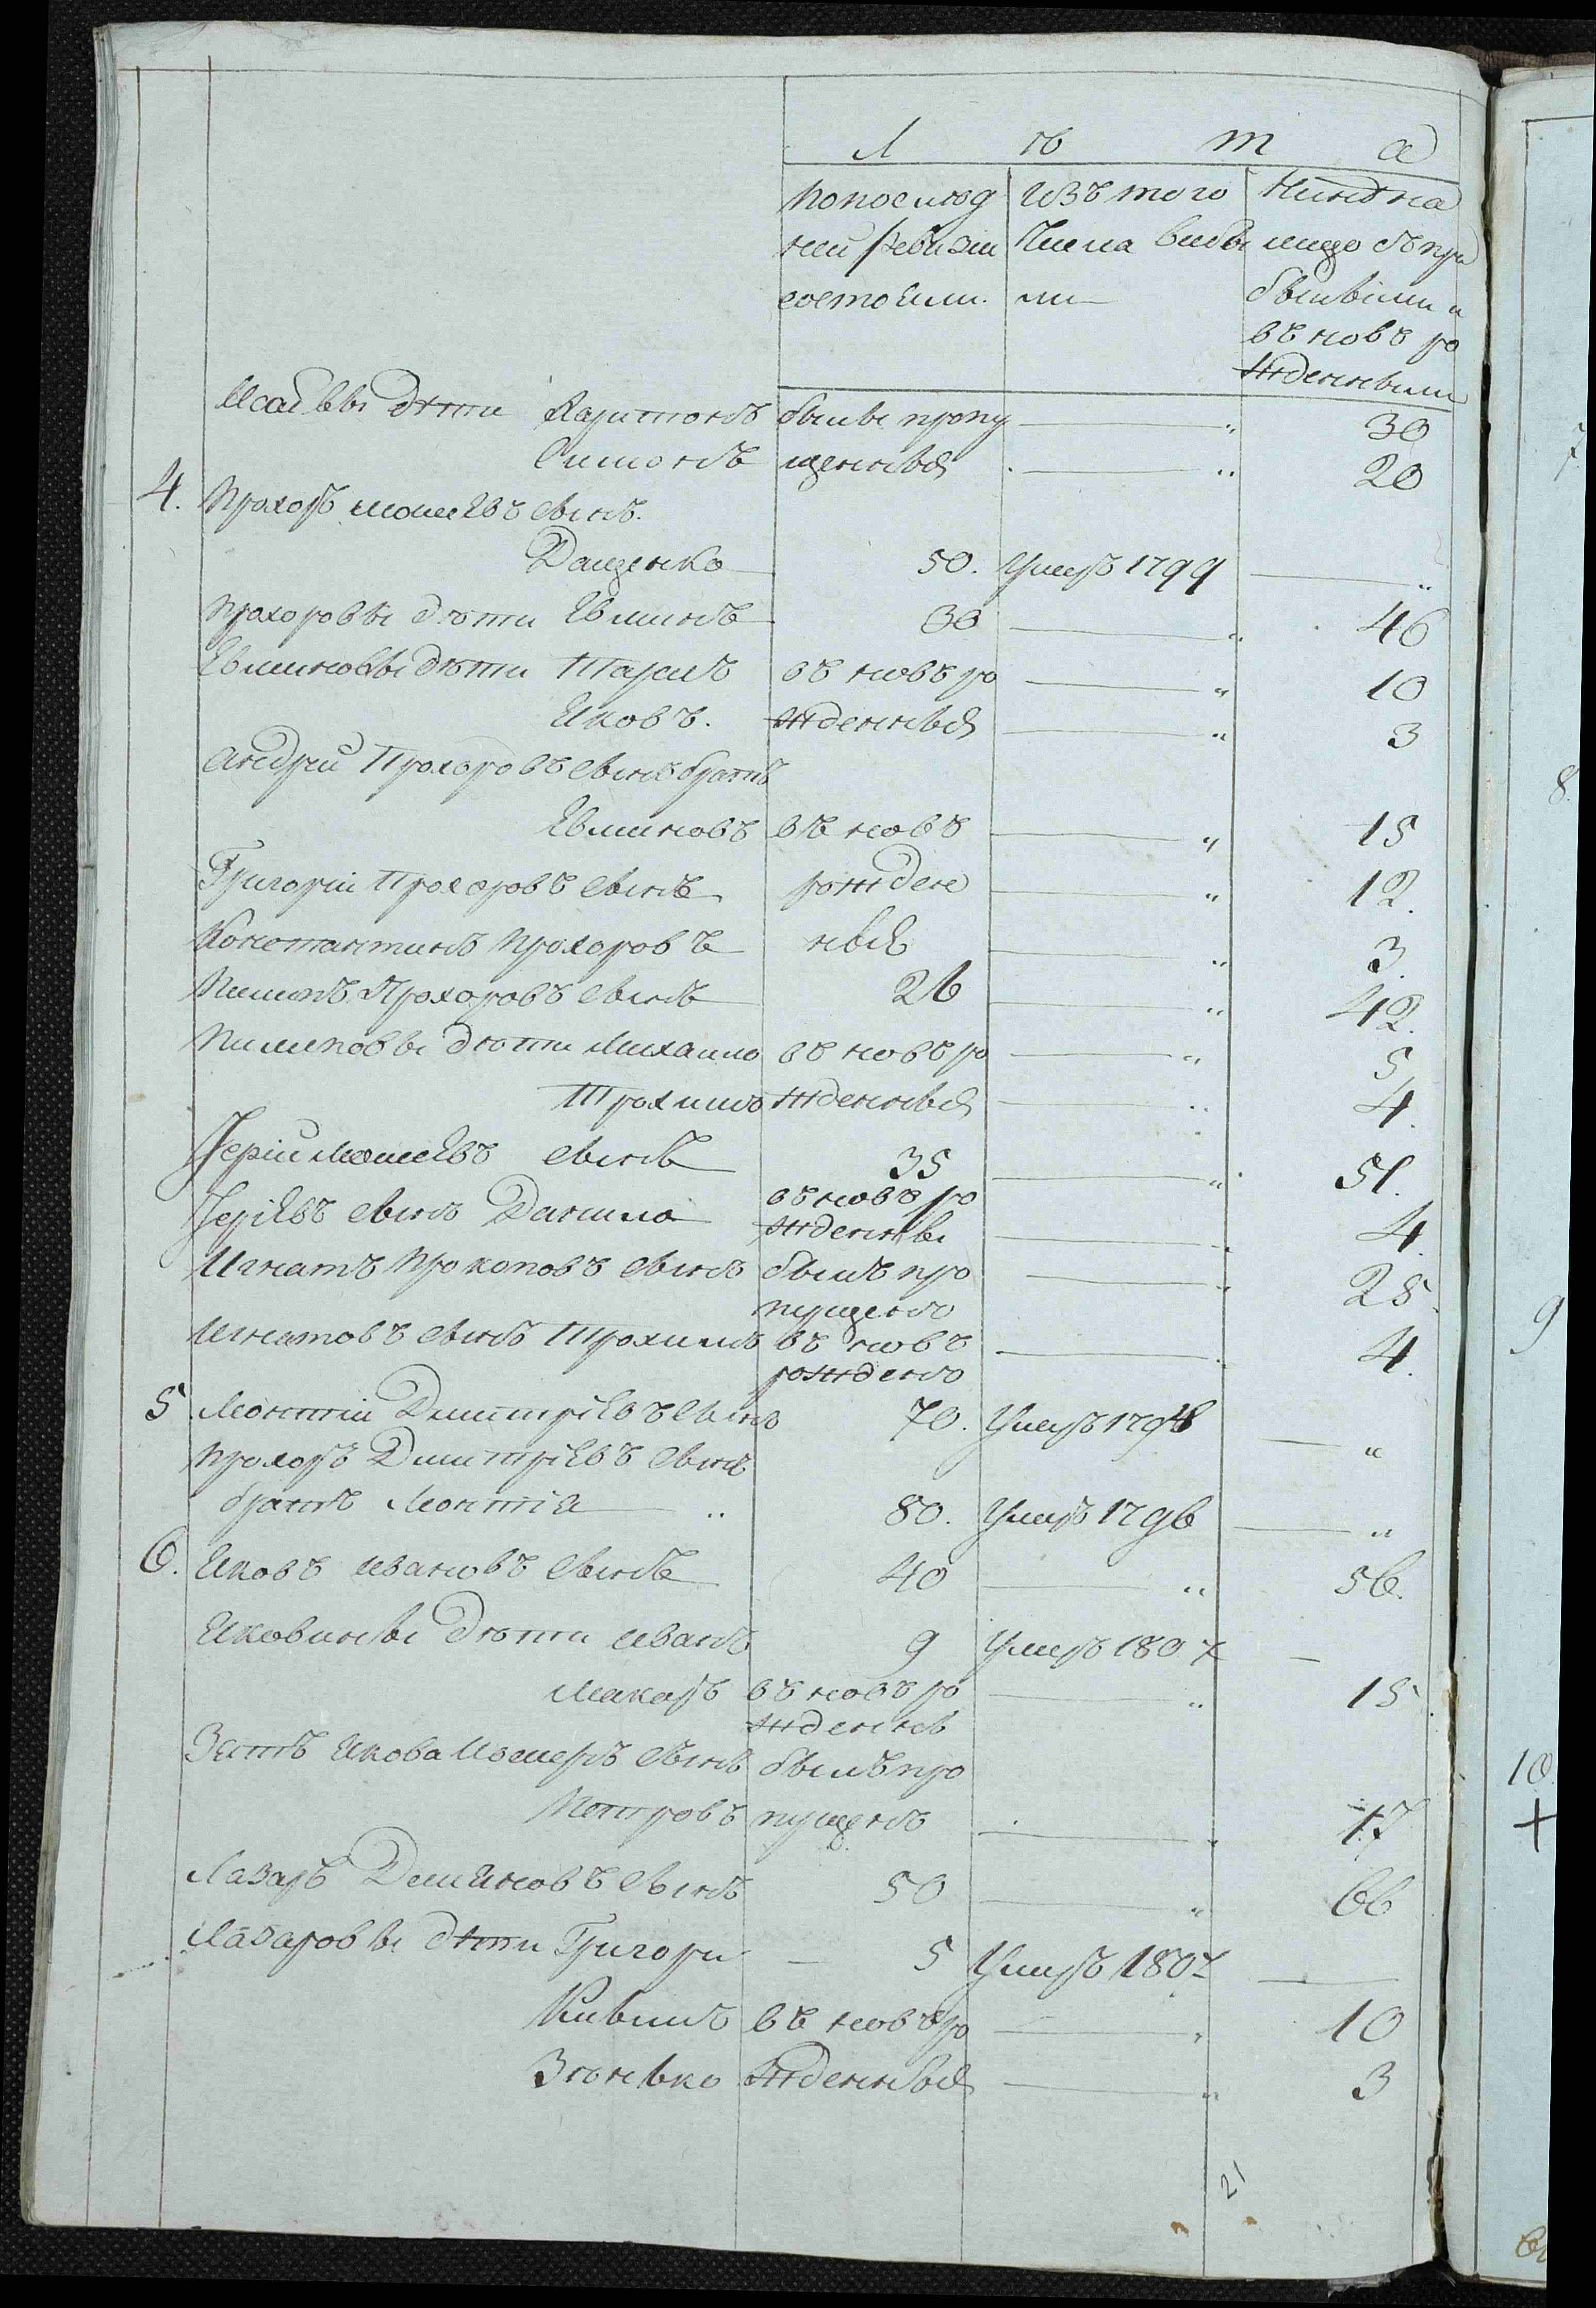 Л ѣ т а
Попослѣд Изъ того Нынѣ на
ней ревизіи Числа выбы лицо съпри
состояли. ли бывшими и
въ новѣ ро
жденными
дѣти Харитонъ былы пропу — „ 30
Симонъ щенныя — „ 20
4. Прохоръ Моисѣевъ сынъ
Даценко 50. Умеръ 1799 — „
Прохоровы дѣти Евминъ 30 — „ 46
Евминовы дѣти Тарасъ въ новѣ ро — „ 10
Яковъ. жденныя — „ 3
Андрей Прохоровъ сынъ братъ
Евминовъ въ новѣ — „ 15
Григорій Прохоровъ сынъ рожден — „ 12.
Константинъ Прохоровъ ныя — „ 3.
Пилипъ Прохоровъ сынъ 26 — „ 42.
Пилиповы дѣти Михаило въ новѣ ро — „ 5
Трохимъ жденныя — „ 4.
Моисѣевъ сынъ 35 — „ 51.
сынъ Данило въ новѣ ро
жденны — „ 4.
Игнатъ Прокоповъ сынъ былъ про — „ 28.
пущенъ
Игнатовъ сынъ Трохимъ въ новѣ — „ 4.
рожденъ
5. Монтій Дмитріевъ сынъ 70. Умеръ 1798 — „
Прохоръ Дмитріевъ сынъ
братъ Монтія „ 80. Умеръ 1796 — „
6. Яковъ Ивановъ сынъ 40 — „ 56.
Яковины дѣти Иванъ 9 Умеръ 1807 —
Макаръ въ новѣ ро — „ 15
жденнъ
Зятъ Якова сынъ былъ про
Петровъ пущенъ — „ 17
Лазаръ Демяновъ сынъ 50 — „ 66
Лазаровы дѣти Григори — 5 Умеръ 1807 —
въ новѣ ро — „ 10
Зѣнько жденныя — „ 3
21
7
8.
9
10.
+